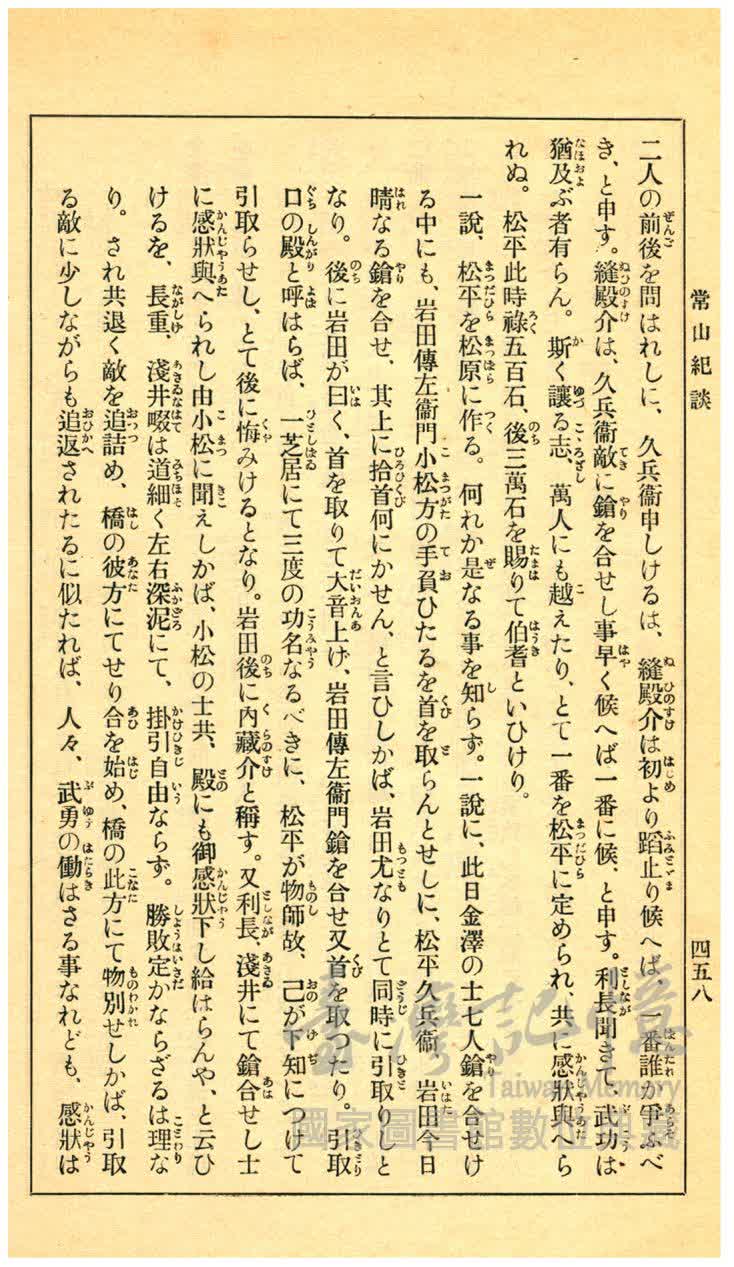 常山紀談
四五八
二人の前後を問はれしに、久兵衞申しけるは、縫殿介は初より蹈止り候へば、一番誰か爭ふべ
き、と申す。縫殿介は、久兵衞敵に鎗を合せし事早く候へば一番に候、と申す。利長聞きて、武功は
猶及ぶ者有らん。斯く讓る志、萬人にも越えたり、とて一番を松平に定められ、共に感狀與へら
れぬ。松平此時祿五百石、後三萬石を賜りて伯耆といひけり。
一說、松平を松原に作る。何れか是なる事を知らず。一說に、此日金澤の士七人鎗を合せけ
る中にも、岩田傳左衞門小松方の手負ひたるを首を取らんとせしに、松平久兵衞、岩田今日
晴なる鎗を合せ、其上に拾首何にかせん、と言ひしかば、岩田尤なりとて同時に引取りしと
なり。後に岩田が曰く、首を取りて大音上げ、岩田傳左衞門鎗を合せ又首を取つたり。引取
口の殿と呼はらば、一芝居にて三度の功名なるべきに、松平が物師故、己が下知につけて
引取らせし、とて後に悔みけるとなり。岩田後に內藏介と稱す。又利長、淺井にて鎗合せし士
に感狀與へられし由小松に聞えしかば、小松の士共、殿にも御感狀下し給はらんや、と云ひ
けるを、長重、淺井畷は道細く左右深泥にて、掛引自由ならず。勝敗定かならざるは理な
り。され共退く敵を追詰め、橋の彼方にてせり合を始め、橋の此方にて物別せしかば、引取
る敵に少しながらも追返されたるに似たれば、人々、武勇の働はさる事なれども、感狀は
臺灣記憶
Taiwan Memory
國家圖書館數位典藏